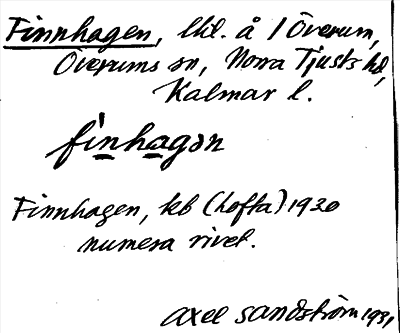 Finnhagen, lkl. å 1 Överum,
Överums sn, Norra Tjusts hd,
Kalmar l.
fìnhagən
Finnhagen, kb (Lofta) 1930
numera rivet.
Axel Sandström 1931